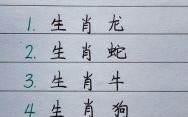 1. 生肖龙
2. 生肖蛇
3. 生肖牛
4 生肖狗